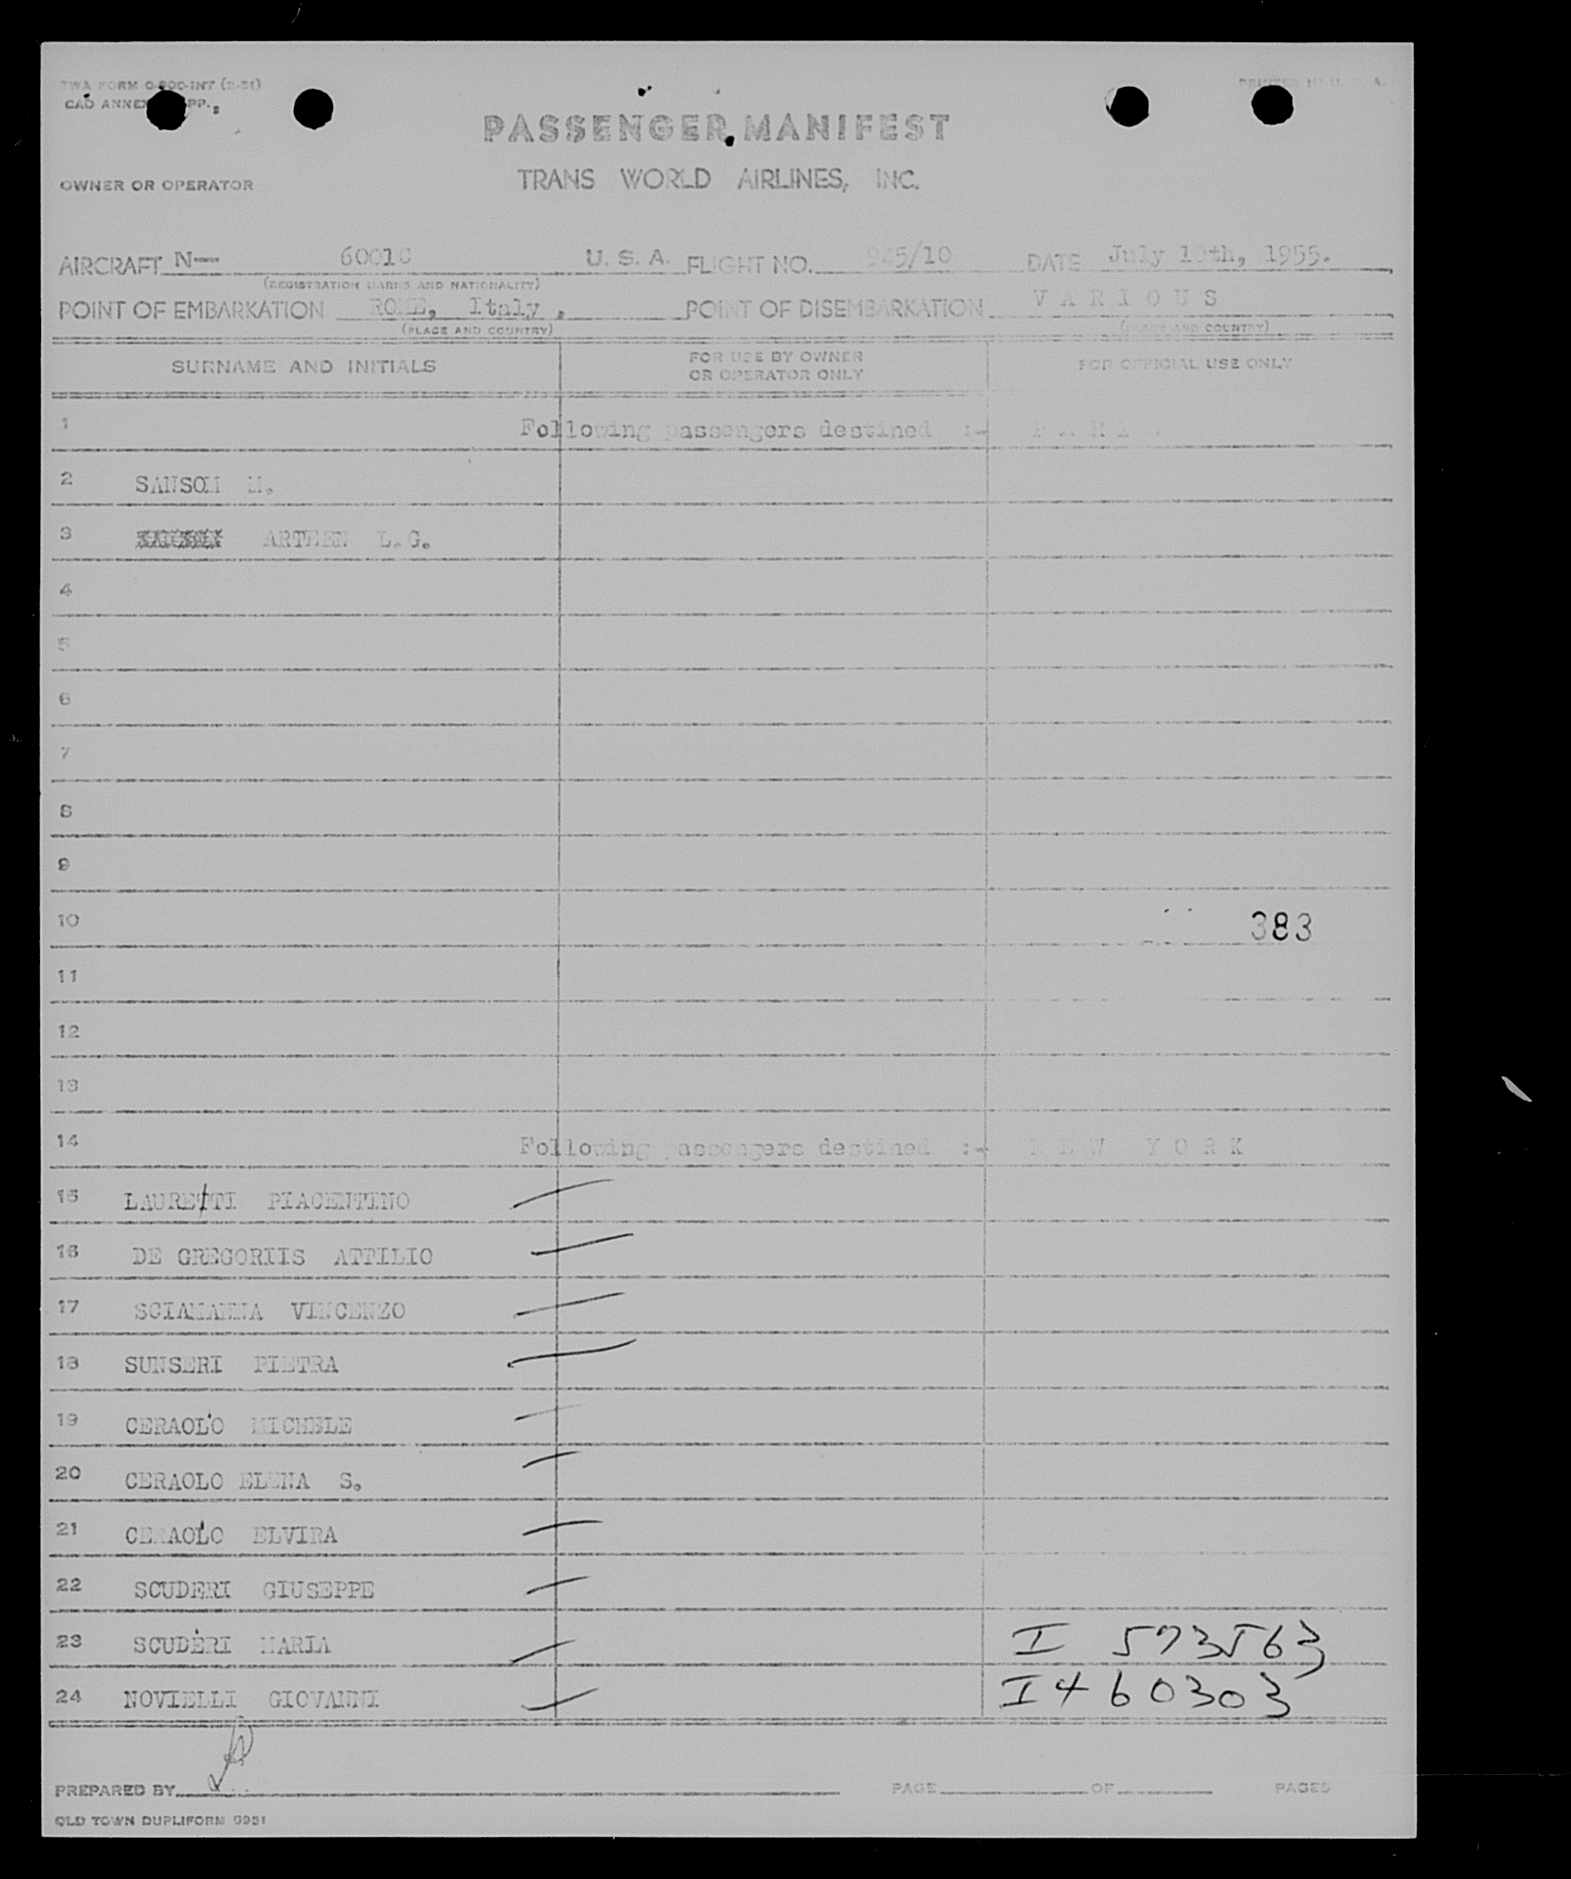 TWA FORM
CAO ANNEX
PASSENGER MANIFEST
OWNER OR OPERATOR TRANS WORLD AIRLINES, INC.
AIRCRAFT N-- 6001C U. S. A. FLIGHT NO. 945/10 DATE July 10th, 1955.
(REGISTRATION MARKS AND NATIONALITY)
POINT OF EMBARKATION ROME, Italy . POINT OF DISEMBARKATION V A R I O U S
(PLACE AND COUNTRY) (PLACE AND COUNTRY)
SURNAME AND INITIALS FOR USE BY OWNER OR OPERATOR ONLY FOR OFFICIAL USE ONLY
1 Following passengers destined :-
2 SANSOM M.
3 L.G.
4
5
6
7
8
9
10 383
11
12
13
14 Following passengers destined :- N E W Y O R K
15 LAURETTI PIACENTINO
16 DE GREGORIIS ATTILIO
17 SCIAMANNA VINCENZO
18 SUNSERI PIETRA
19 CERAOLO MICHELE
20 CERAOLO ELENA S.
21 CERAOLO ELVIRA
22 SCUDERI GIUSEPPE
23 SCUDERI MARIA I 573563
24 NOVIELLI GIOVANNI I 460303
PREPARED BY PAGE OF PAGES
OLD TOWN DUPLIFORM 9951